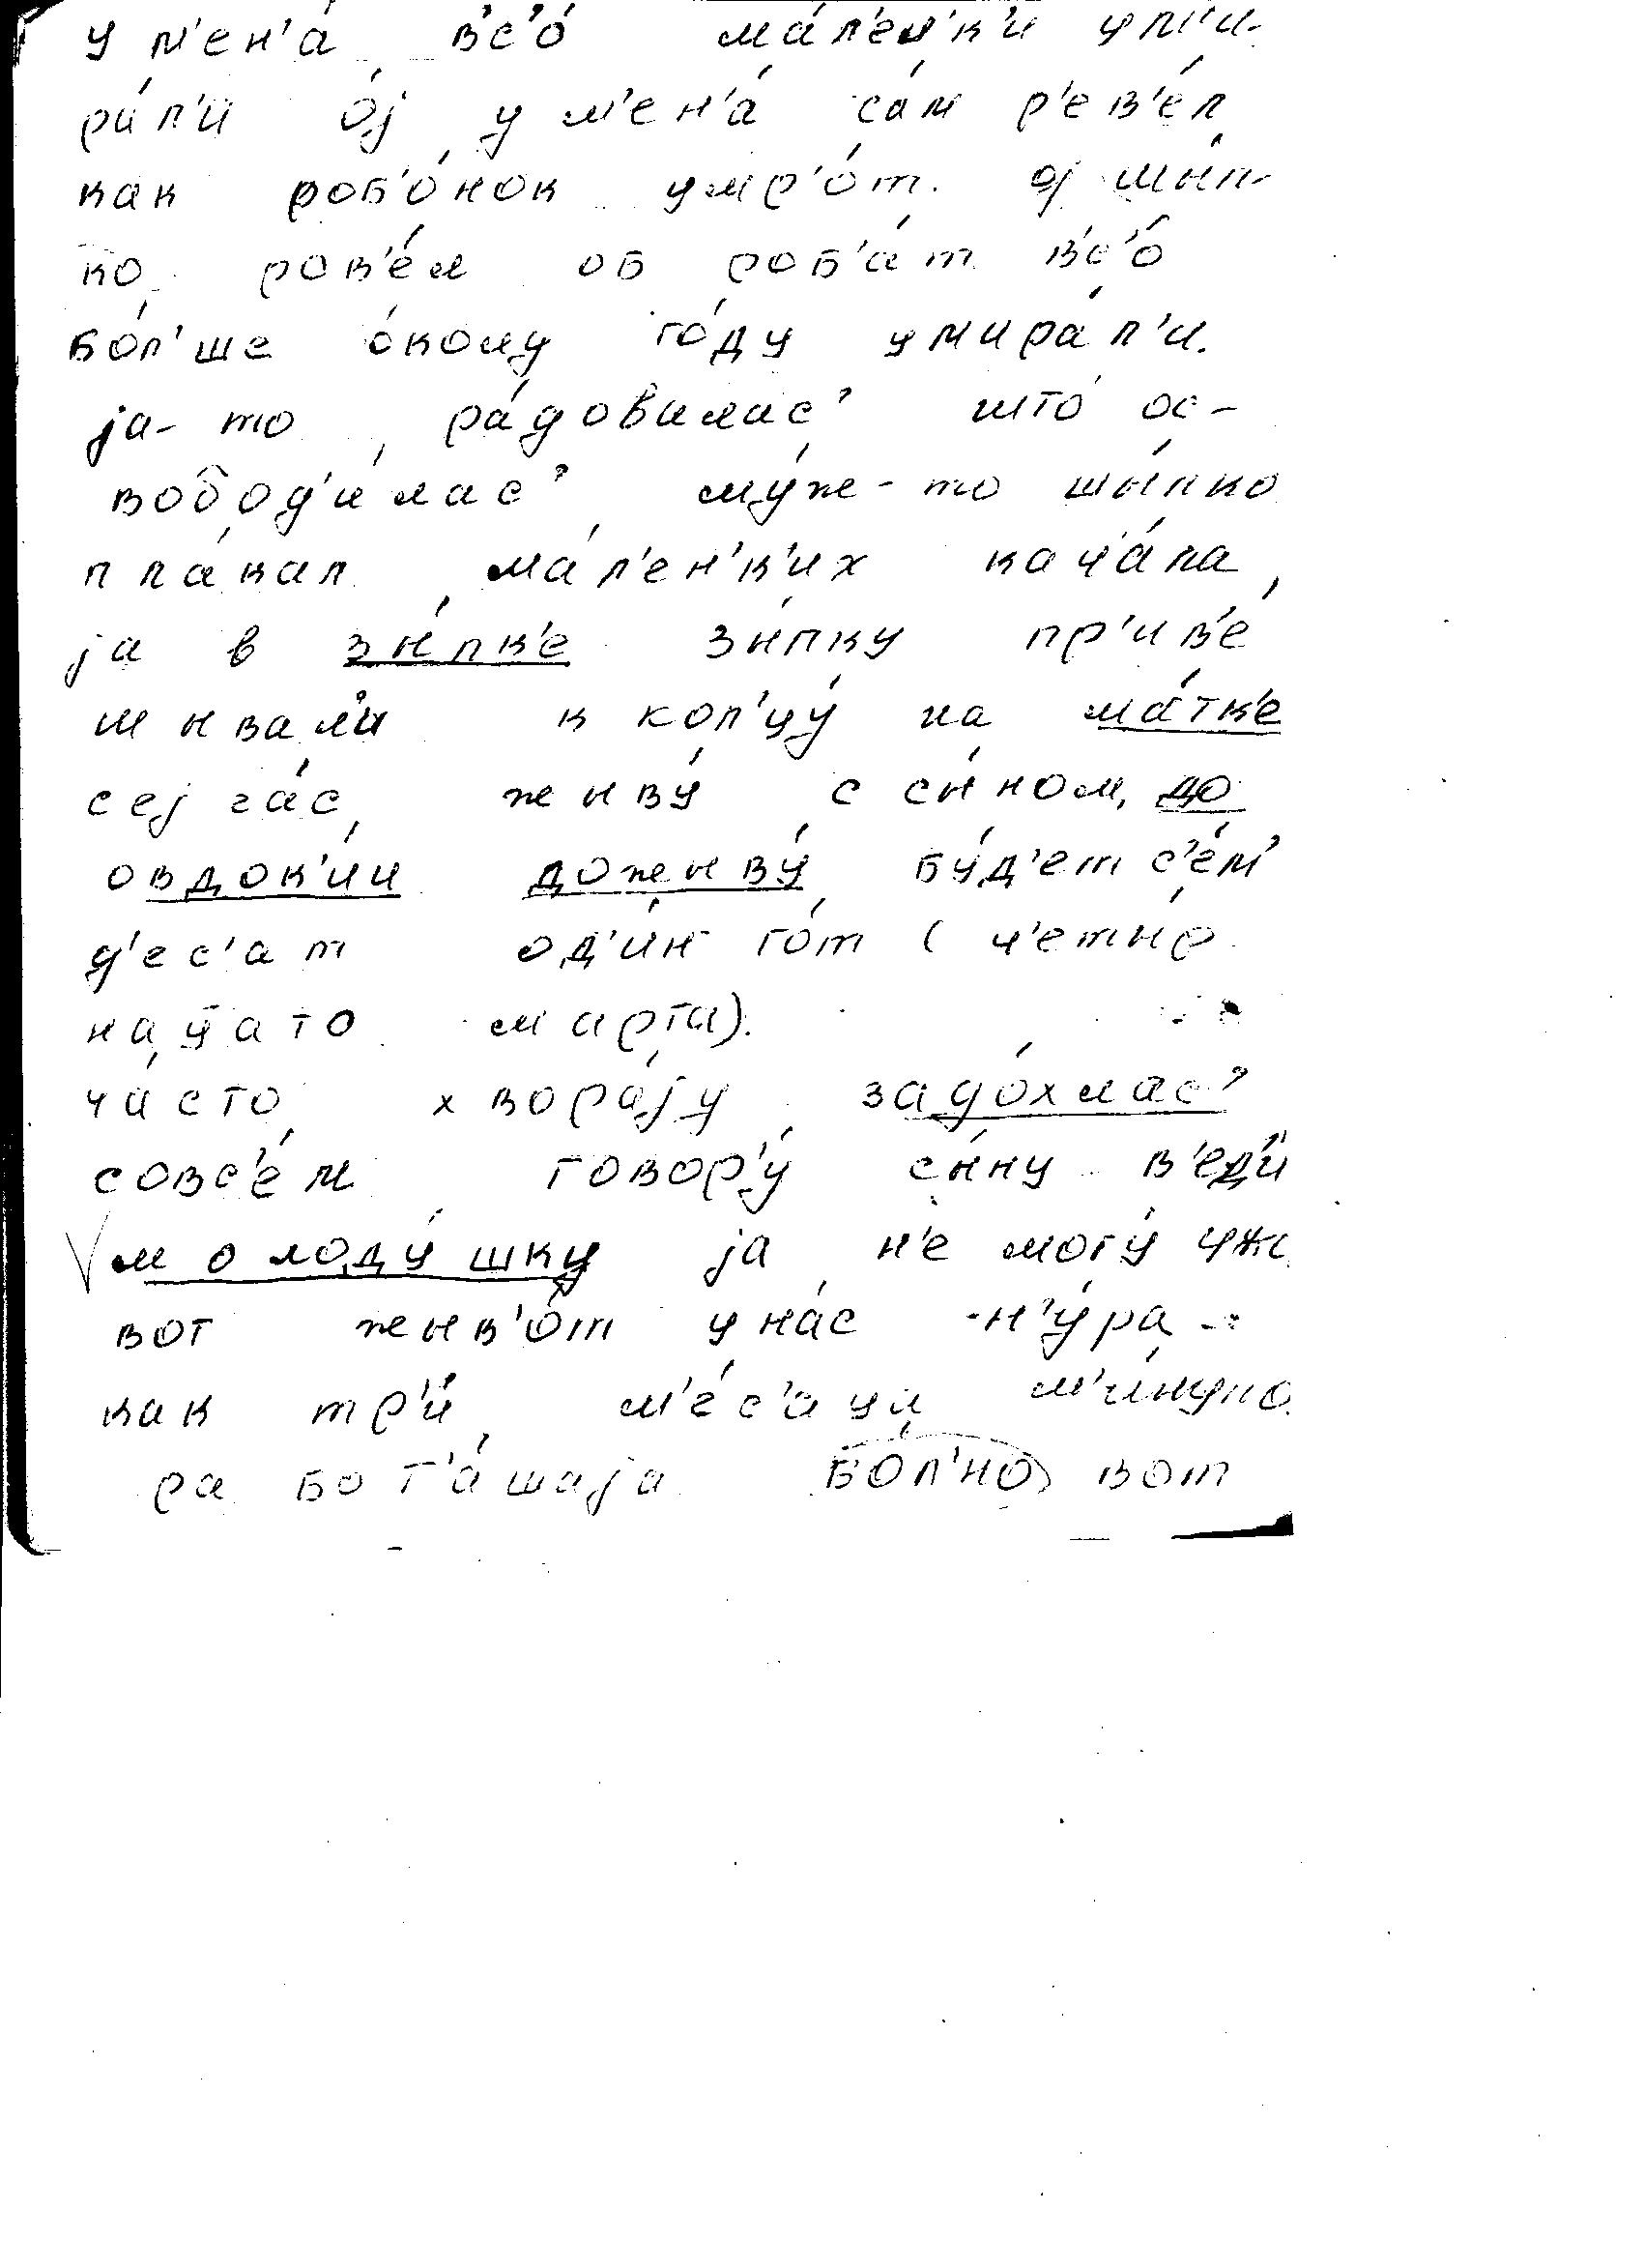 у м'ен'а́ в'с'о́ ма́л'ен'к'и ум'и-
ра́л'и о́ј у м'ен'а́ са́м р'ев'е́л
как роб'о́нок умр'о́т. ој шы́п-
ко ров'е́л об роб'а́т в'с'о́
бо́л'ше о́кому го́ду умира́л'и.
ја-то ра́довилас' што́ ос-
вобод'и́лас', му́же-то шы́пко
пла́кал, ма́л'ен'к'их кача́ла,
ја в зы́пк'е зы́пку пр'ив'е́
шывал'и к кол'цу́ на ма́тк'е
сејча́с, жыву́ с сы́ном, до
овдок'ии дожыву́ бу́д'ет с'е́м'
д'ес'ат од'и́н го́т (ч'еты́р
нацато марта).
ча́сто, хвора́ју, задо́хлас'
совс'е́м, говор'у́ сы́ну в'ед'и́
молоду́шку ја н'е могу́ уж
вот жыв'о́т у на́с -н'у́ра-
как тр'и́ м'е́с'аца м'и́нуло
работ'а́шаја бо́л'но вот